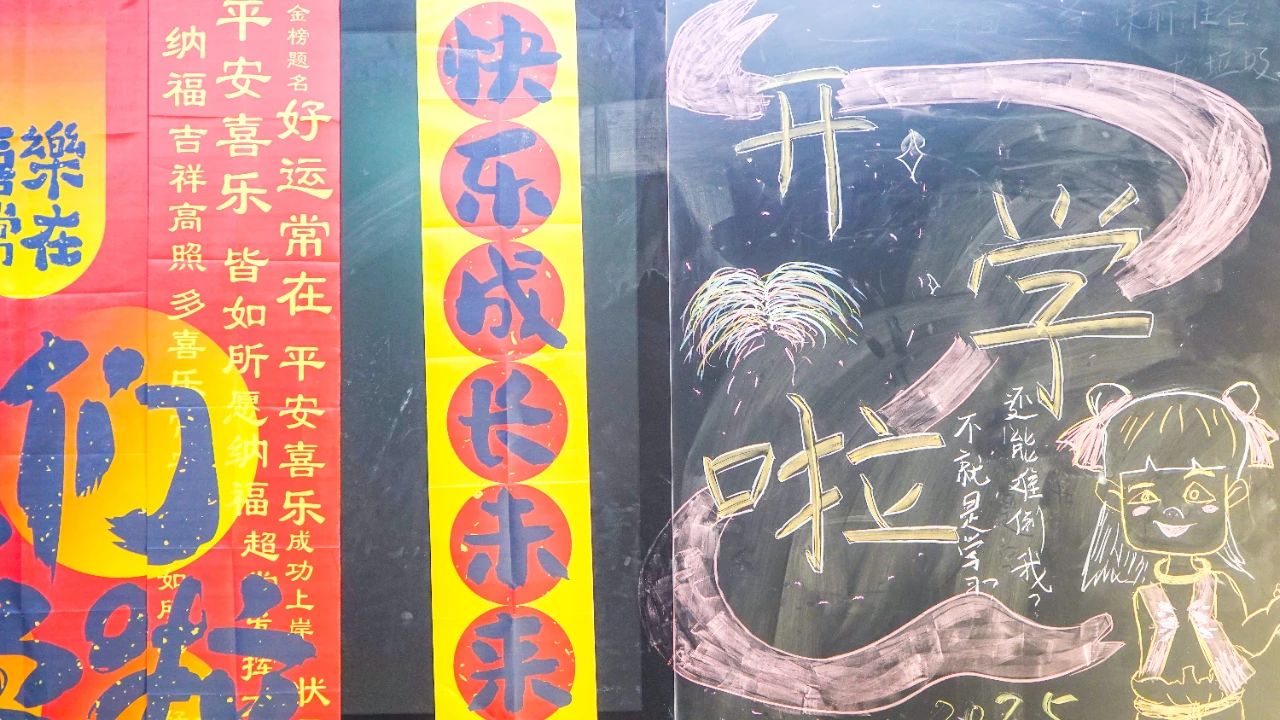 樂在
常
们
纳福 吉祥高照 多喜乐
平安喜乐 皆如所愿 纳福 超常发挥
金榜题名 好运常在 平安喜乐 成功上岸
快乐成长未来
开学啦
不就是学习
还能难倒我?
2025